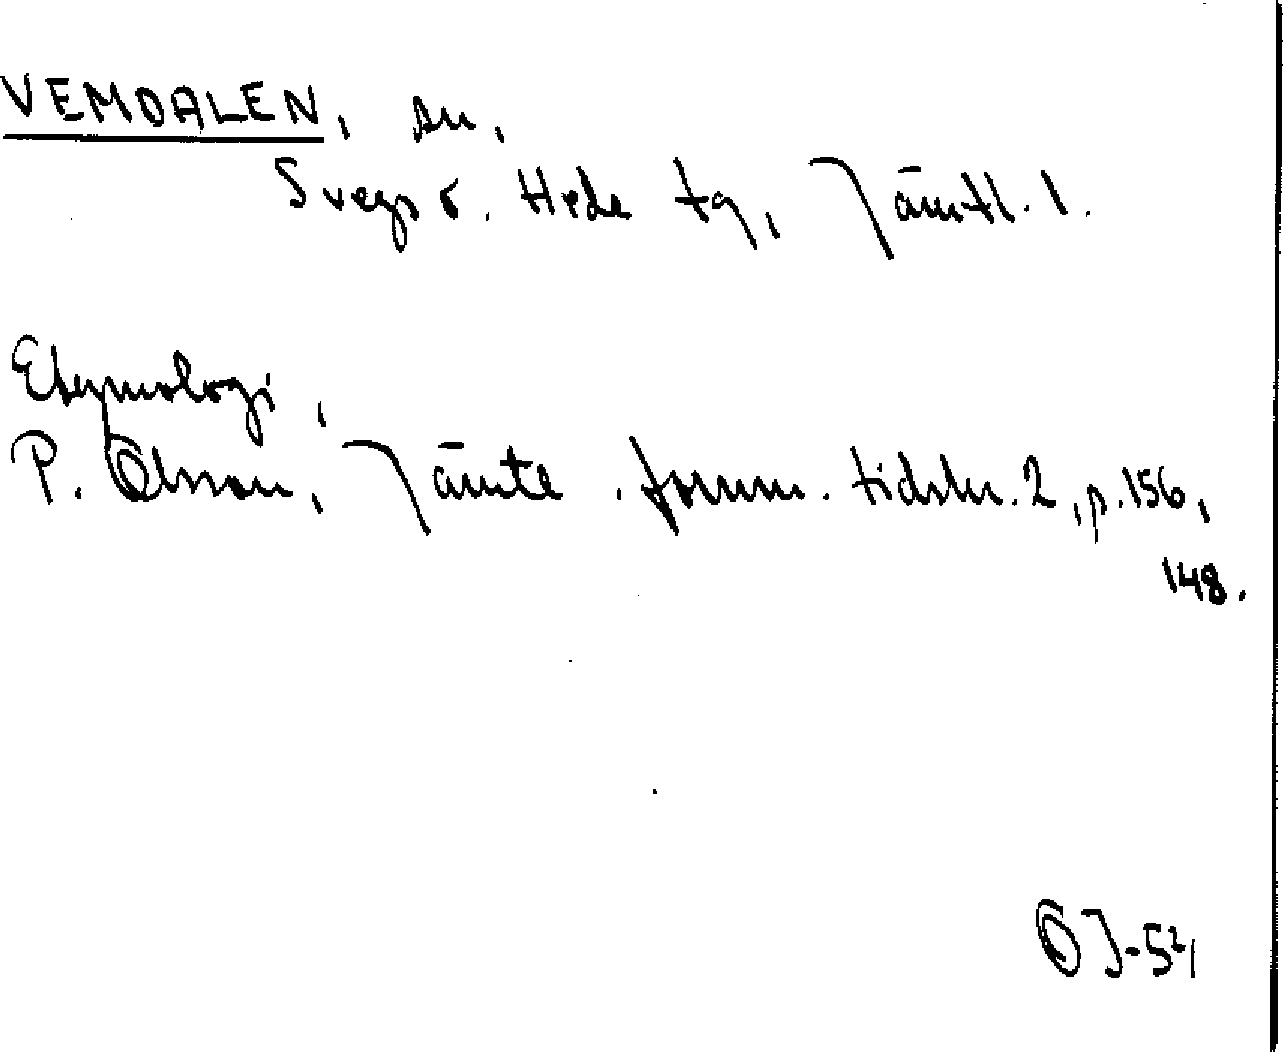 VEMDALEN, sn,
Svegs o. Hede tg, Jämtl. l.
Etymologi,
P. Olsson, Jämte. fornm. tidskr. 2, p. 156,
148.
OJ-54